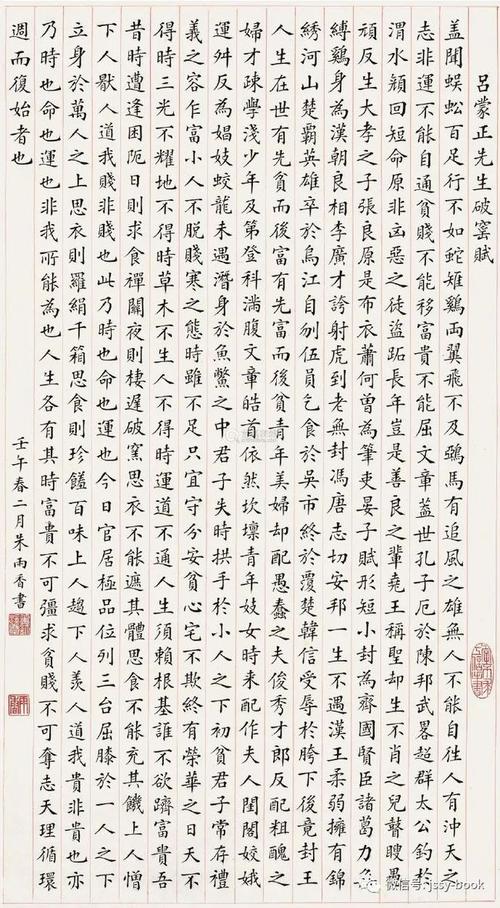 呂蒙正先生破窰賦
蓋聞蜈蚣百足行不如蛇雉鷄両翼飛不及鵶馬有追風之雄無人不能自往人有沖天之
志非運不能自通貧賤不能移富貴不能屈文章蓋世孔子厄於陳邦武畧超群太公釣於
渭水顏回短命原非凶惡之徒盜跖長年豈是善良之輩堯王稱聖却生不肖之兒瞽瞍愚
頑反生大孝之子張良原是布衣蕭何曾為筆吏晏子賦形短小封為齊國賢臣諸葛力
縛鷄身為漢朝良相李廣才誇射虎到老無封馮唐志切安邦一生不遇漢王柔弱擁有錦
綉河山楚霸英雄卒於烏江自刎伍員乞食於吳市終於覆楚韓信受辱於胯下後竟封王
人生在世有先貧而後富有先富而後貧青年美婦却配愚蠢之夫俊秀才郎反配粗醜之
婦才疎學淺少年及第登科滿腹文章皓首依然坎壈青年妓女時來配作夫人閨閣姣娥
運舛反為娼妓蛟龍未遇潛身於魚鱉之中君子失時拱手於小人之下初貧君子常存禮
義之容乍富小人不脫賤寒之態時雖不足只宜守分安貧心宅不欺終有榮華之日天不
得時三光不耀地不得時草木不生人不得時運道不通人生須賴根基誰不欲躋富貴吾
昔時遭逢困阨日則求食禪關夜則棲遲破窯思衣不能遮其體思食不能充其饑上人憎
下人猒人道我賤非賤也此乃時也命也運也今日官居極品位列三台屈膝於一人之下
立身於萬人之上思衣則羅絹千箱思食則珍饈百味上人趨下人羨人道我貴非貴也亦
乃時也命也運也非我所能為也人生各有其時富貴不可彊求貧賤不可奪志天理循環
週而復始者也
壬午春二月朱雨香書
微信号: jssy-book